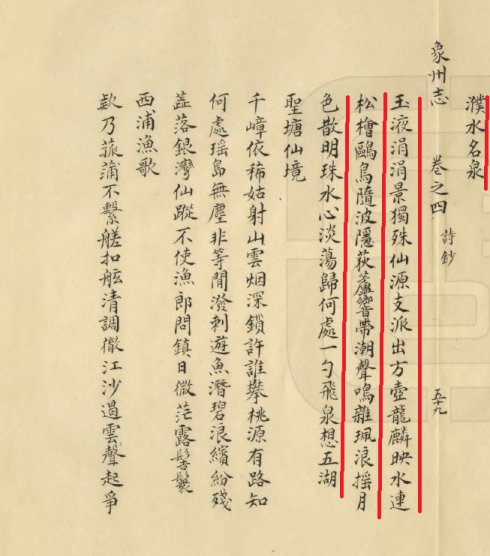 濮水名泉
象州志 卷之四 詩鈔 五十九
玉液涓涓景獨殊仙源支派出方壺龍麟映水連
松檜鷗鳥隨波隱荻蘆響帶潮聲鳴雜珮浪搖月
色散明珠水心淡蕩歸何處一勺飛泉想五湖
聖塘仙境
千嶂依稀姑射山雲烟深鎖許誰攀桃源有路知
何處瑶島無塵非等閒潑刺遊魚潛碧浪繽紛殘
蕋落銀灣仙蹤不使漁郎問鎮日微茫露髻鬟
西浦漁歌
欵乃菰蒲不繫艖扣舷清調徹江沙遏雲聲起爭